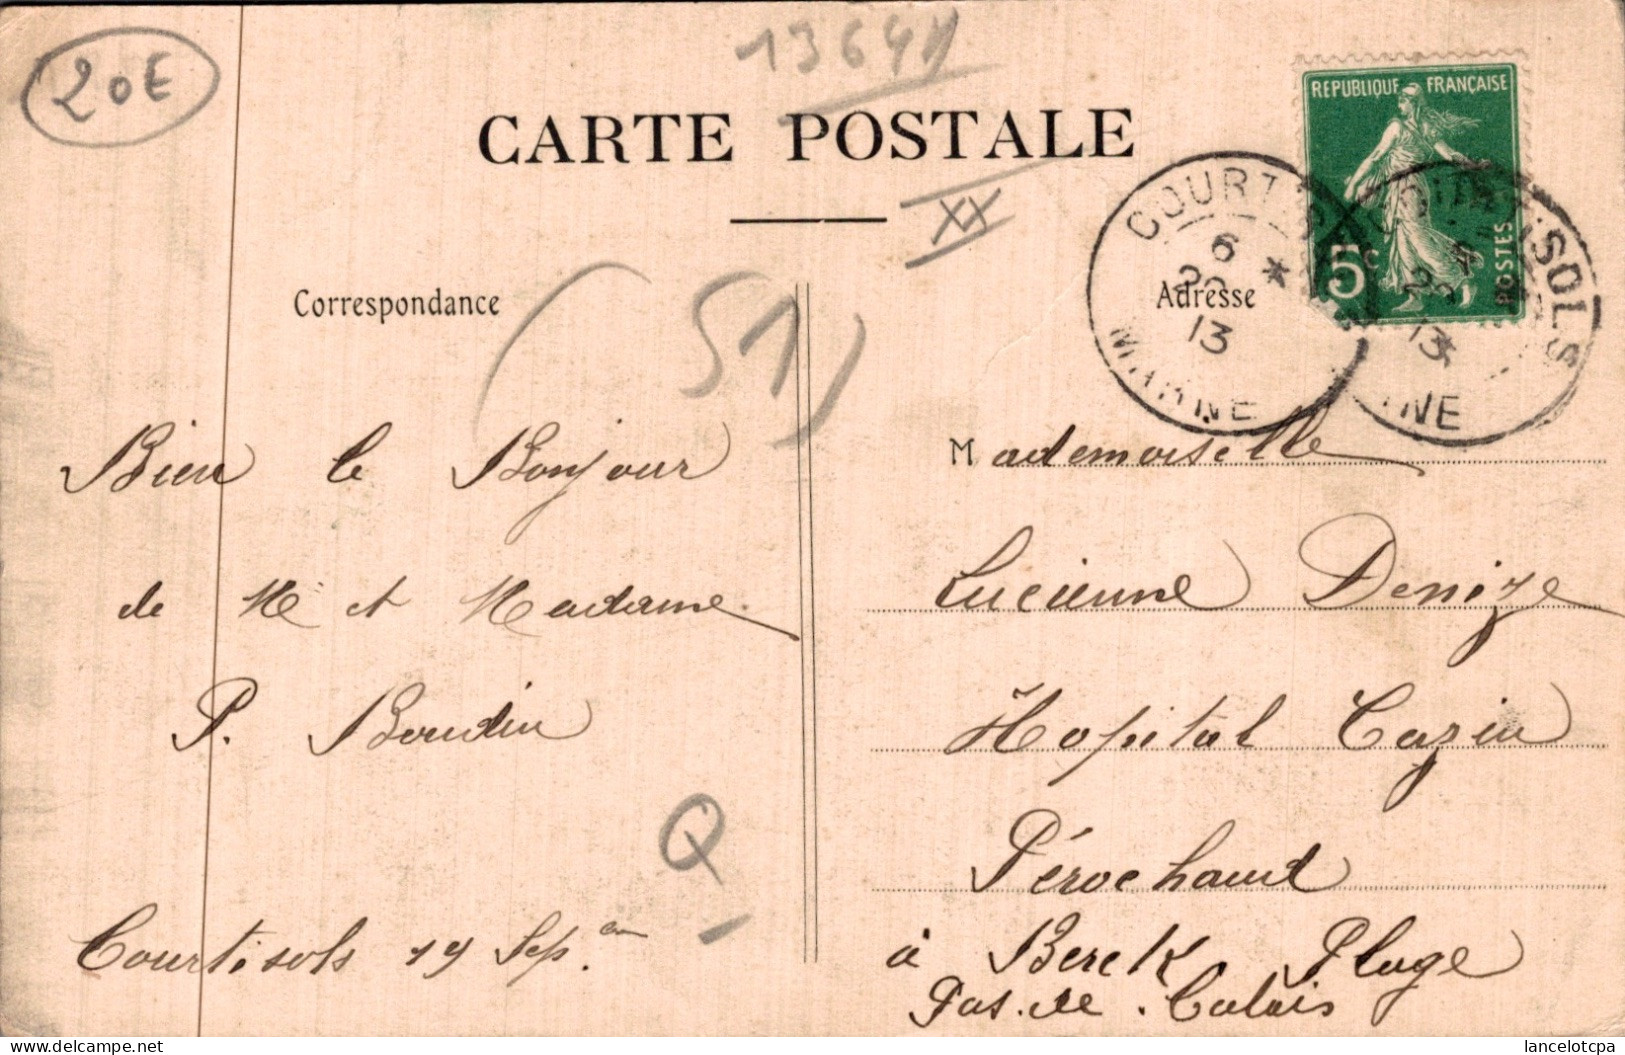 20E
1364
CARTE POSTALE
XX
REPUBLIQUE FRANÇAISE
5c
POSTES
COURTISOLS
6
13
MARNE
COURTISOLS
13
Correspondance
(51)
Adresse
Bien le Bonjour
de M et Madame
P. Boudin
Q
Courtisols 19 Sep.
Mademoiselle
Lucienne Denize
Hopital Cazin
Pérochaud
à Berck Plage
Pas.de.Calais
lancelotcpa